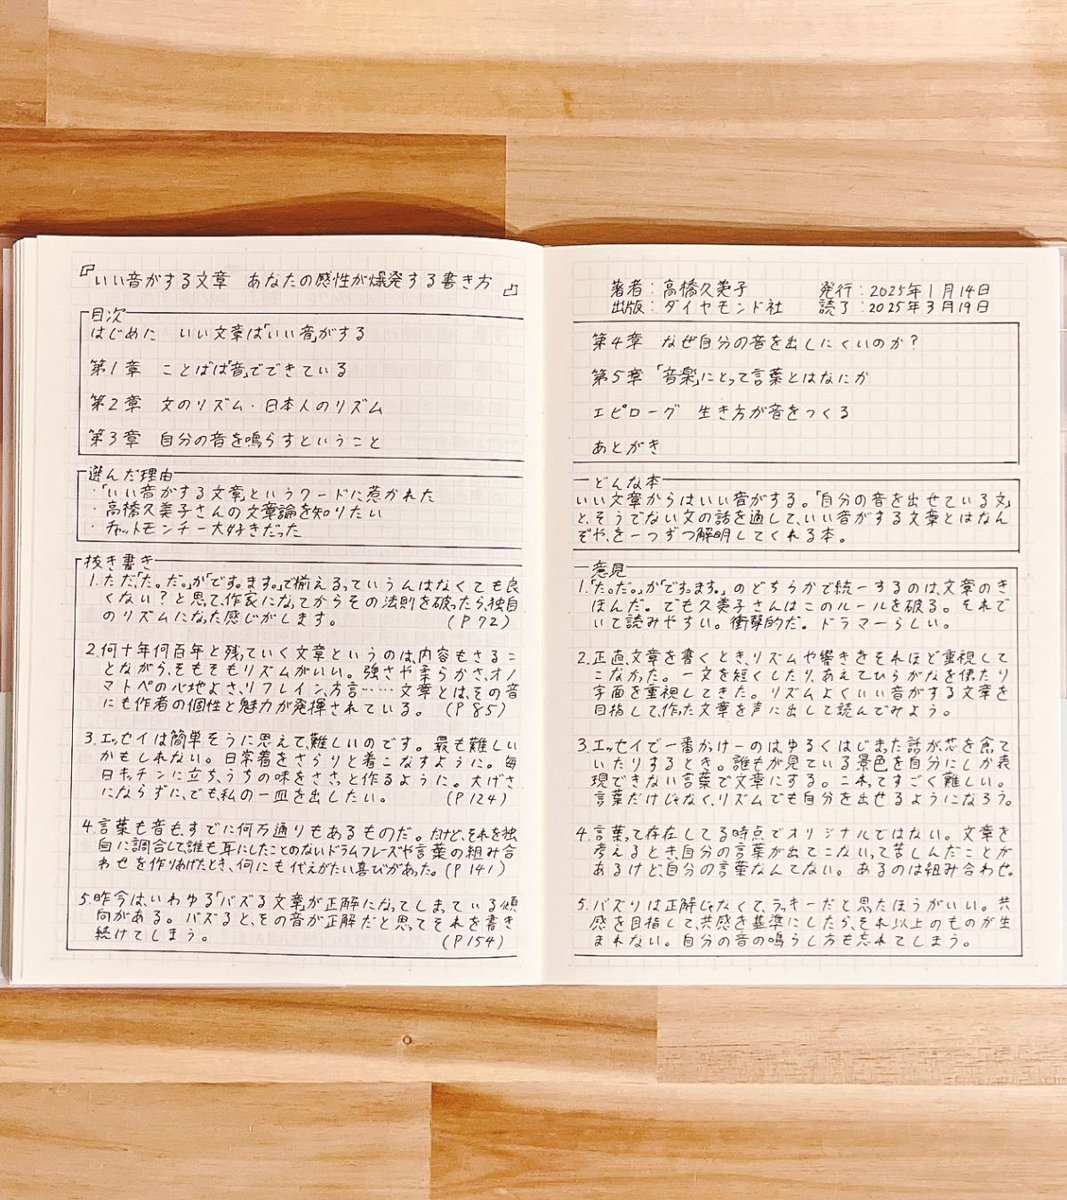 『いい音がする文章 あなたの感性が爆発する書き方』
目次
はじめに いい文章は「いい音」がする
第1章 ことばは「音」でできている
第2章 文のリズム・日本人のリズム
第3章 自分の音を鳴らすということ
選んだ理由
・「いい音がする文章」というワードに惹かれた
・高橋久美子さんの文章論を知りたい
・チャットモンチー大好きだった
抜き書き
1.ただ、「た。だ。」か「です。ます。」で揃えるっていうんはなくても良
くない?と思って、作家になってからその法則を破ったら、独自
のリズムになった感じがします。 (P72)
2.何十年何百年と残っていく文章というのは、内容もさるこ
とながら、そもそもリズムがいい。強さや柔らかさ、オノ
マトペの心地よさ、リフレイン、方言……文章とは、その音
にも作者の個性と魅力が発揮されている。 (P85)
3.エッセイは簡単そうに思えて、難しいのです。最も難しい
かもしれない。日常着をさらりと着こなすように。毎
日キッチンに立ち、うちの味をささっと作るように。大げさ
にならずに、でも、私の一皿を出したい。 (P124)
4.言葉も音もすでに何万通りもあるものだ。だけど、それを独
自に調合して、誰も耳にしたことのないドラムフレーズや言葉の組み合
わせを作りあげたとき、何にも代えがたい喜びがあった。(P141)
5.昨今は、いわゆる「バズる文章」が正解になってしまっている傾
向がある。バズると、その音が正解だと思ってそれを書き
続けてしまう。 (P154)
著者:高橋久美子 発行:2025年1月14日
出版:ダイヤモンド社 読了:2025年3月19日
第4章 なぜ自分の音を出しにくいのか?
第5章 「音楽」にとって言葉とはなにか
エピローグ 生き方が音をつくる
あとがき
どんな本
いい文章からはいい音がする。「自分の音を出せている文」
と、そうでない文の話を通して、いい音がする文章とはなん
ぞや、を一つずつ解明してくれる本。
意見
1.「た。だ。」か「です。ます。」のどちらかで統一するのは、文章のき
ほんだ。でも久美子さんはこのルールを破る。それで
いて読みやすい。衝撃的だ。ドラマーらしい。
2.正直、文章を書くとき、リズムや響きをそれほど重視して
こなかった。一文を短くしたり、あえてひらがなを使ったり
字面を重視してきた。リズムよくいい音がする文章を
目指して、作った文章を声に出して読んでみよう。
3.エッセイで一番かっけーのは、ゆるくはじまった話が芯を食って
いたりするとき。誰もが見ている景色を自分にしか表
現できない言葉で文章にする。これってすごく難しい。
言葉だけじゃなく、リズムでも自分を出せるようになろう。
4.言葉って存在してる時点でオリジナルではない。文章を
考えるとき、自分の言葉が出てこないって苦しんだことが
あるけど、自分の言葉なんてない。あるのは組み合わせ。
5.バズりは正解じゃなくて、ラッキーだと思ったほうがいい。共
感を目指して、共感を基準にしたら、それ以上のものが生
まれない。自分の音の鳴らし方も忘れてしまう。